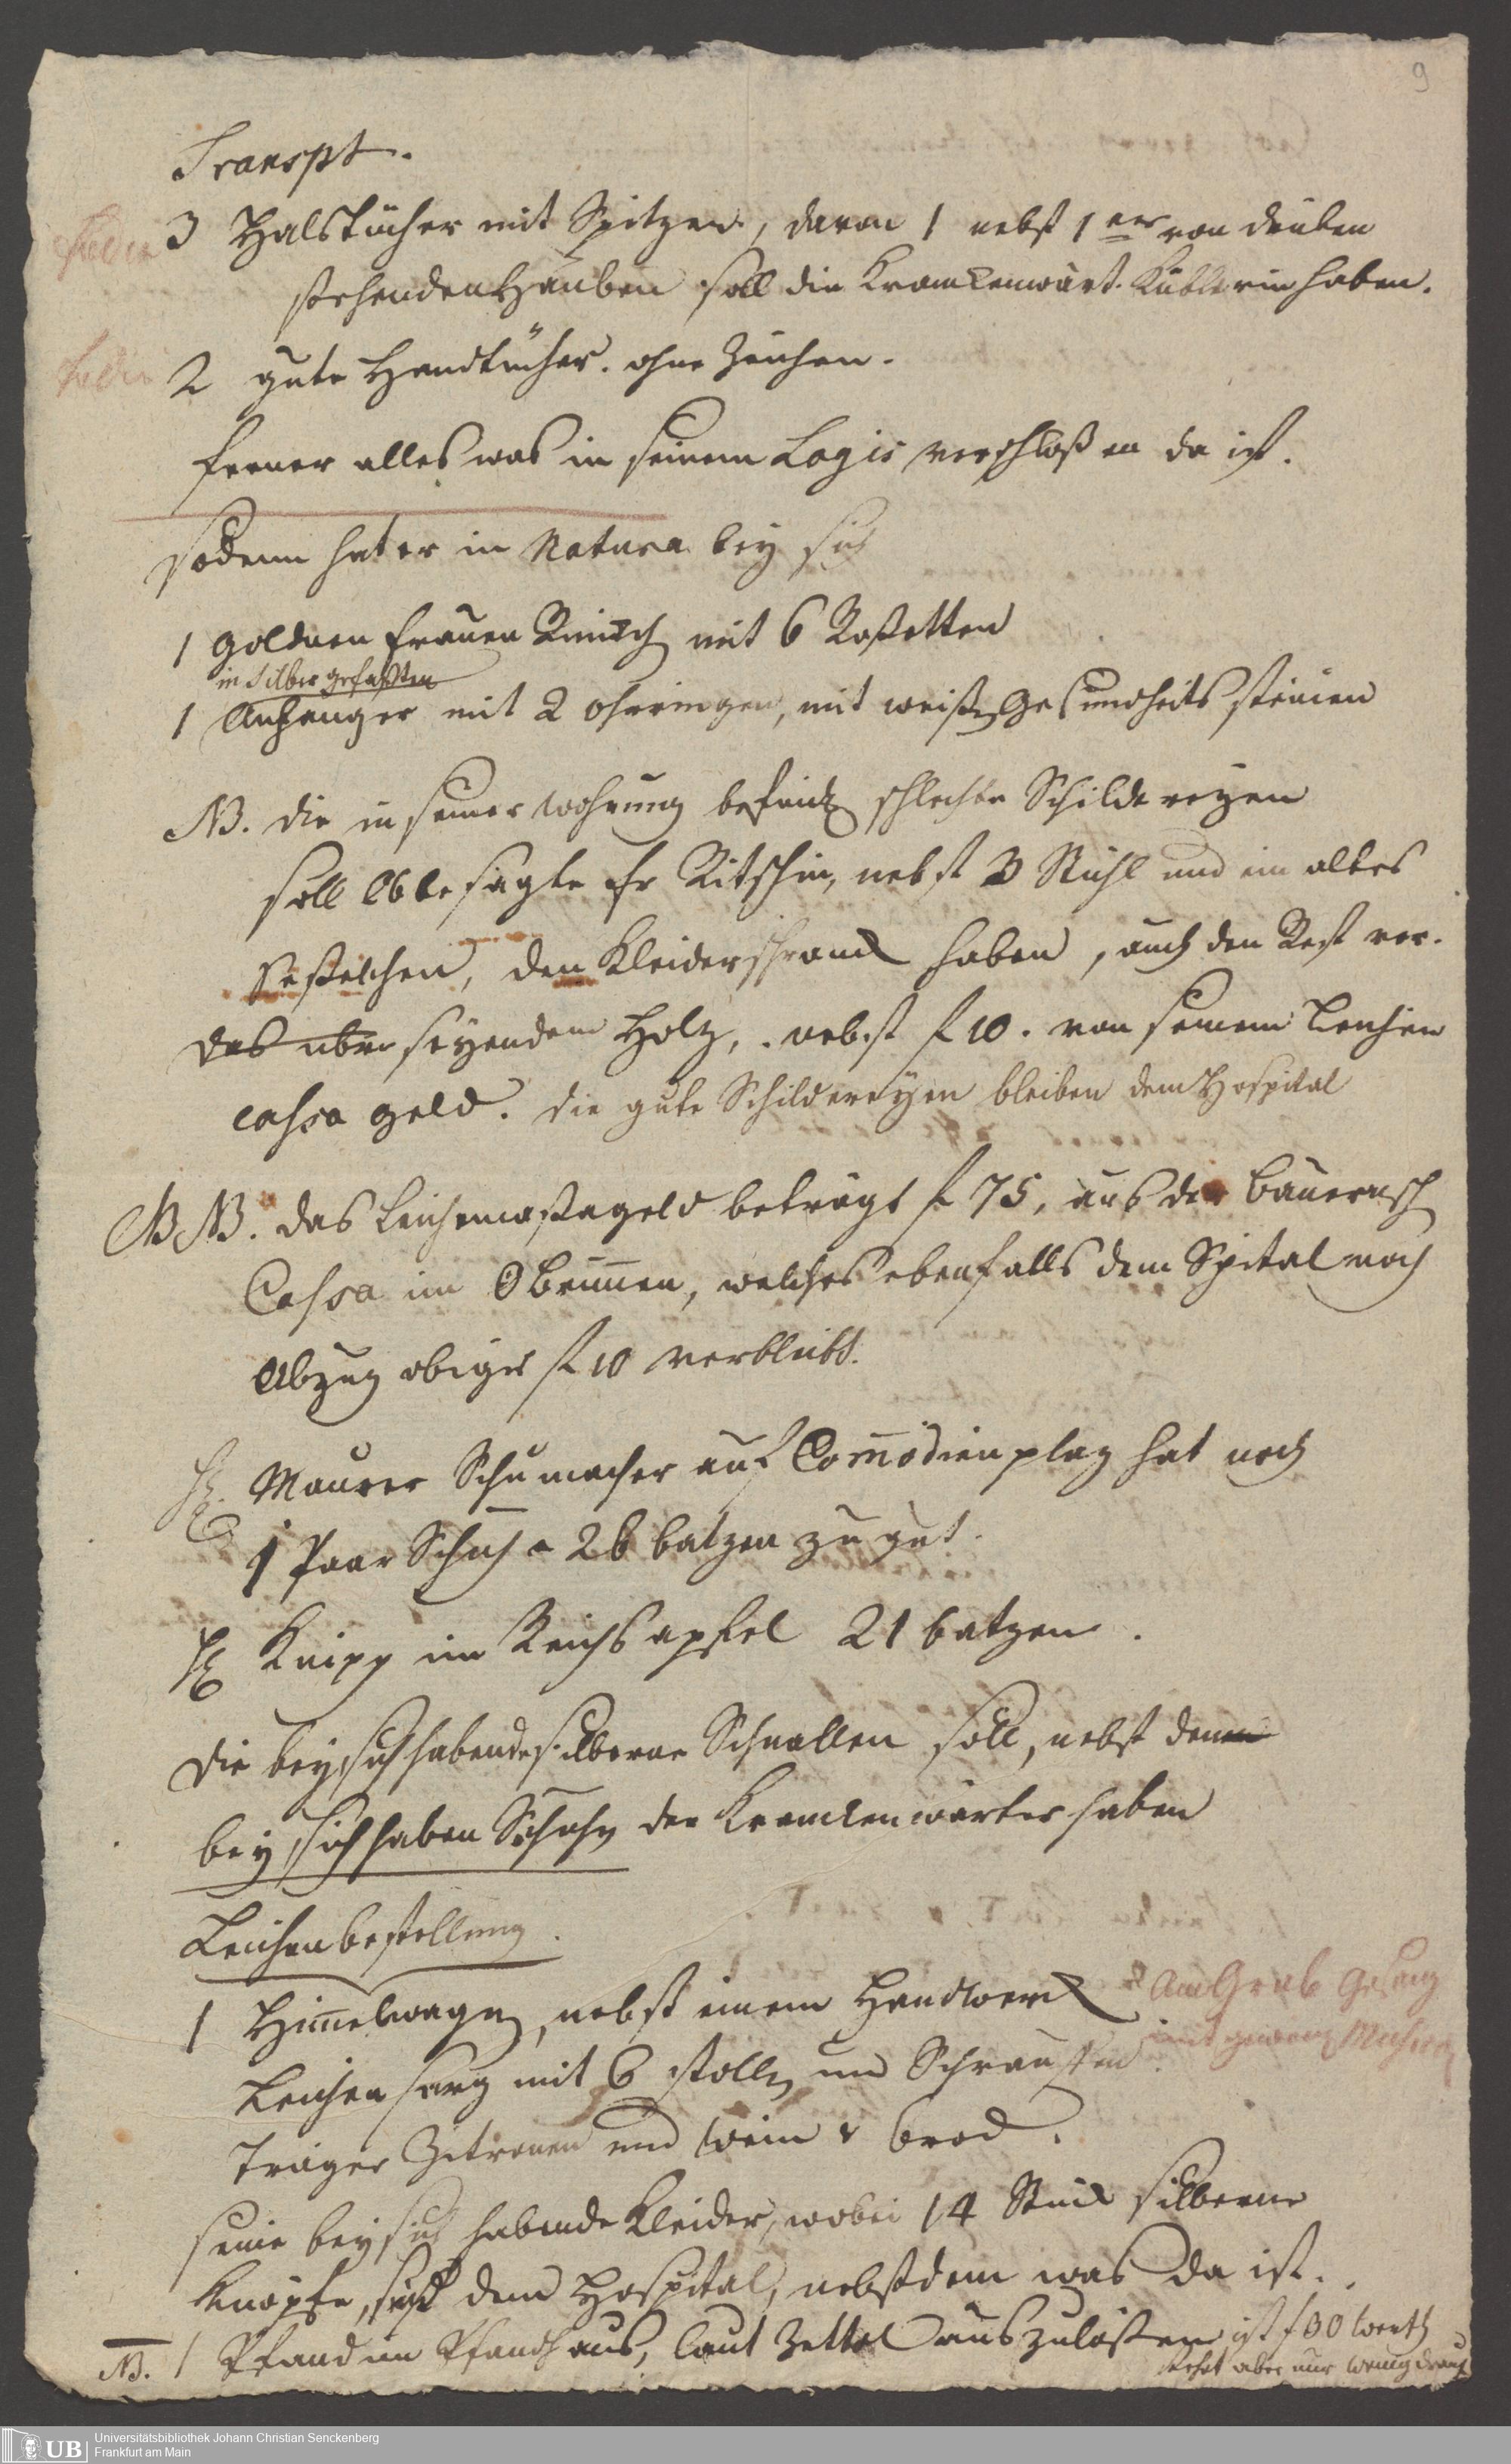 9
Transpt.
3 Halstücher mit Spitzen, davon 1 nebst 1 von
stehenden Hauben soll die Kranckenwärt. Küblerin haben.
2 gute Handtücher. ohne Zeichen.
ferner alles was in seinem Logis verschloßen da ist.
sodann hat er in Natura bey sich
1 goldnen frauen Ring mit 6 Rosetten
in Silber gefaßten
1 Anhenger mit 2 Ohrringen, mit weißen Gesundheits steinen
NB. die in seiner Wohnung befindl schlechte Schildereyen
soll obbesagte fr Ritschin, nebst 3 Stühl und ein altes
Seßelchen, den Kleiderschranck haben, auch den Rest vor-
das über seyendem Holz, nebst f 10. von seinem Leichen
cassa geld. die gute Schildereyen bleiben dem Hospital
NB NB. das Leichencassageld beträgt f 75, aus der Bauernsch
Cassa im Brunnen, welches ebenfalls dem Spital nach
Abzug obiger f 10 verbleibt.
H. Maurer Schumacher auf Comödienplaz hat noch
1 Paar Schuh a 26 batzen zu gut.
H Knipp im Reichsapfel 21 batzen.
die bey sich habende silberne Schnallen soll, nebst denen
bey sich haben Schuhen der Kranckenwärter haben
Leichenbestellung.
1 Himelwagen, nebst einem Handwerck Am Grab Gesang
mit Music
Leichensarg mit 6 stollen und Schrauben.
Träger Zitronen und Wein & Brod.
seine bey sich habende Kleider, wobei 14 Stück silberne
Knöpfe, sind dem Hospital, nebst dem was da ist.
NB. 1 Pfand im Pfandhaus, laut Zettel auszulößen, ist f 30 werth
stehet aber nur wenig drauf
UB
Universitätsbibliothek Johann Christian Senckenberg
Frankfurt am Main